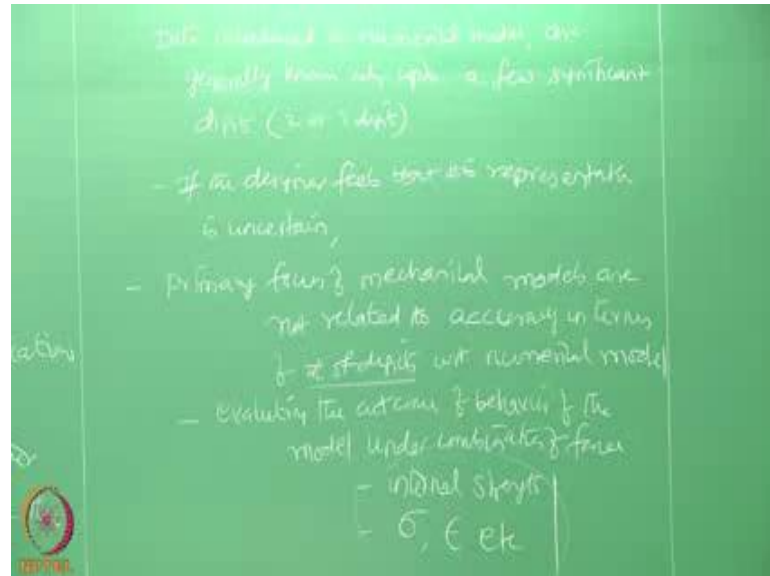 Data introduced in numerical model, are
generally known only upto a few significant
digits (2 or 3 digits)
- If the designer feels that its representation
is uncertain,
- Primary focus of mechanical models are
not related to accuracy in terms
of # of digits wrt numerical model
- evaluating the outcome of behavior of the
model under combination of forces
- internal
- σ, ε etc
cation
NPTEL